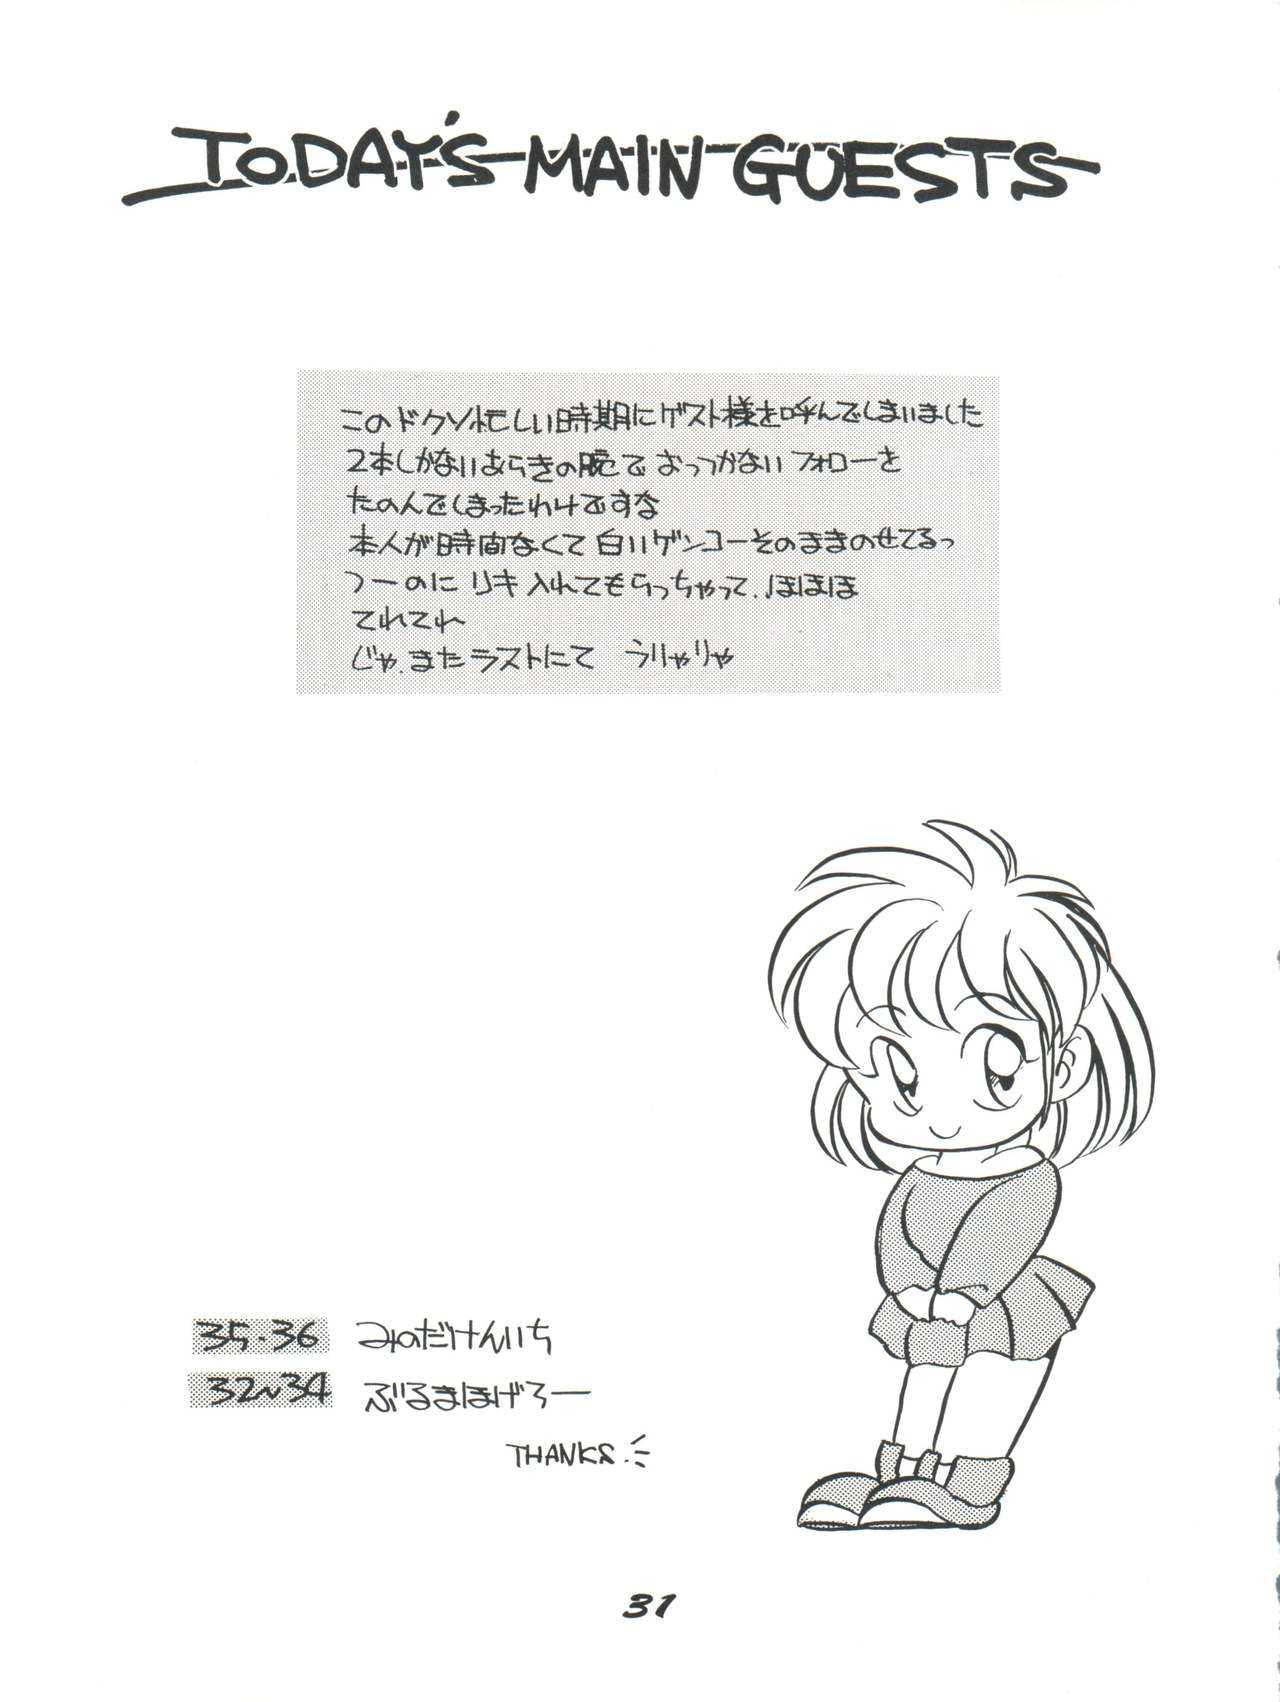 TODAY'S MAIN GUESTS
このドクソ忙しい時期にゲスト様を呼んでしまいました
2本しかないあらきの腕で おっつかないフォローを
たのんでしまったわけですな
本人が時間なくて白いゲンコーそのままのせてるっ
つーのに リキ入れてもらっちゃって、ほほほ
てれてれ
じゃ、またラストにて うりゃりゃ
35・36 みのだけんいち
32~34 ぶるまほげろー
THANKS.
31